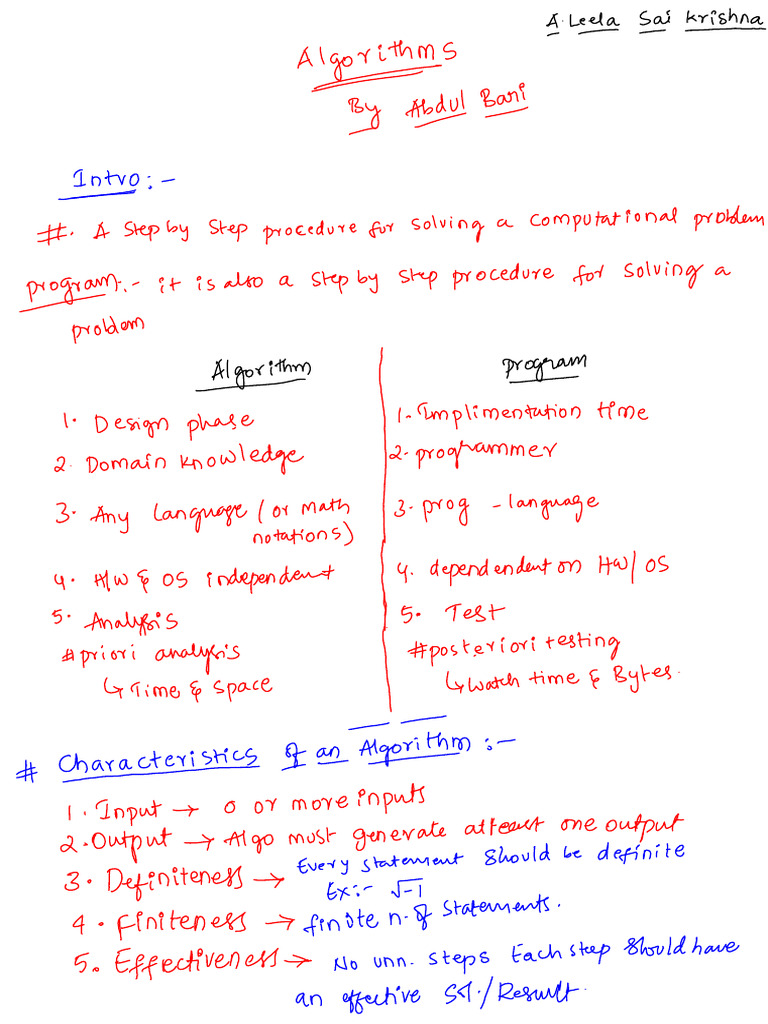 A. Leela Sai Krishna
Algorithms
By Abdul Bari
Intro:-
#. A Step by Step procedure for solving a computational problem
program:- it is also a step by step procedure for solving a
problem
Algorithm
1. Design phase
2. Domain knowledge
3. Any language (or math
notations)
4. H/W & OS independent
5. Analysis
# priori analysis
↳ Time & Space
program
1. Implimentation time
2. programmer
3. prog - language
4. dependendent on HW/OS
5. Test
# posteriori testing
↳ Watch time & Bytes.
# Characteristics of an Algorithm:-
1. Input → 0 or more inputs
2. Output → Algo must generate atleast one output
3. Definiteness → Every statement should be definite
Ex:- √-1
4. Finiteness → finite n. of statements.
5. Effectiveness → No unn. steps Each step should have
an effective St./Result.